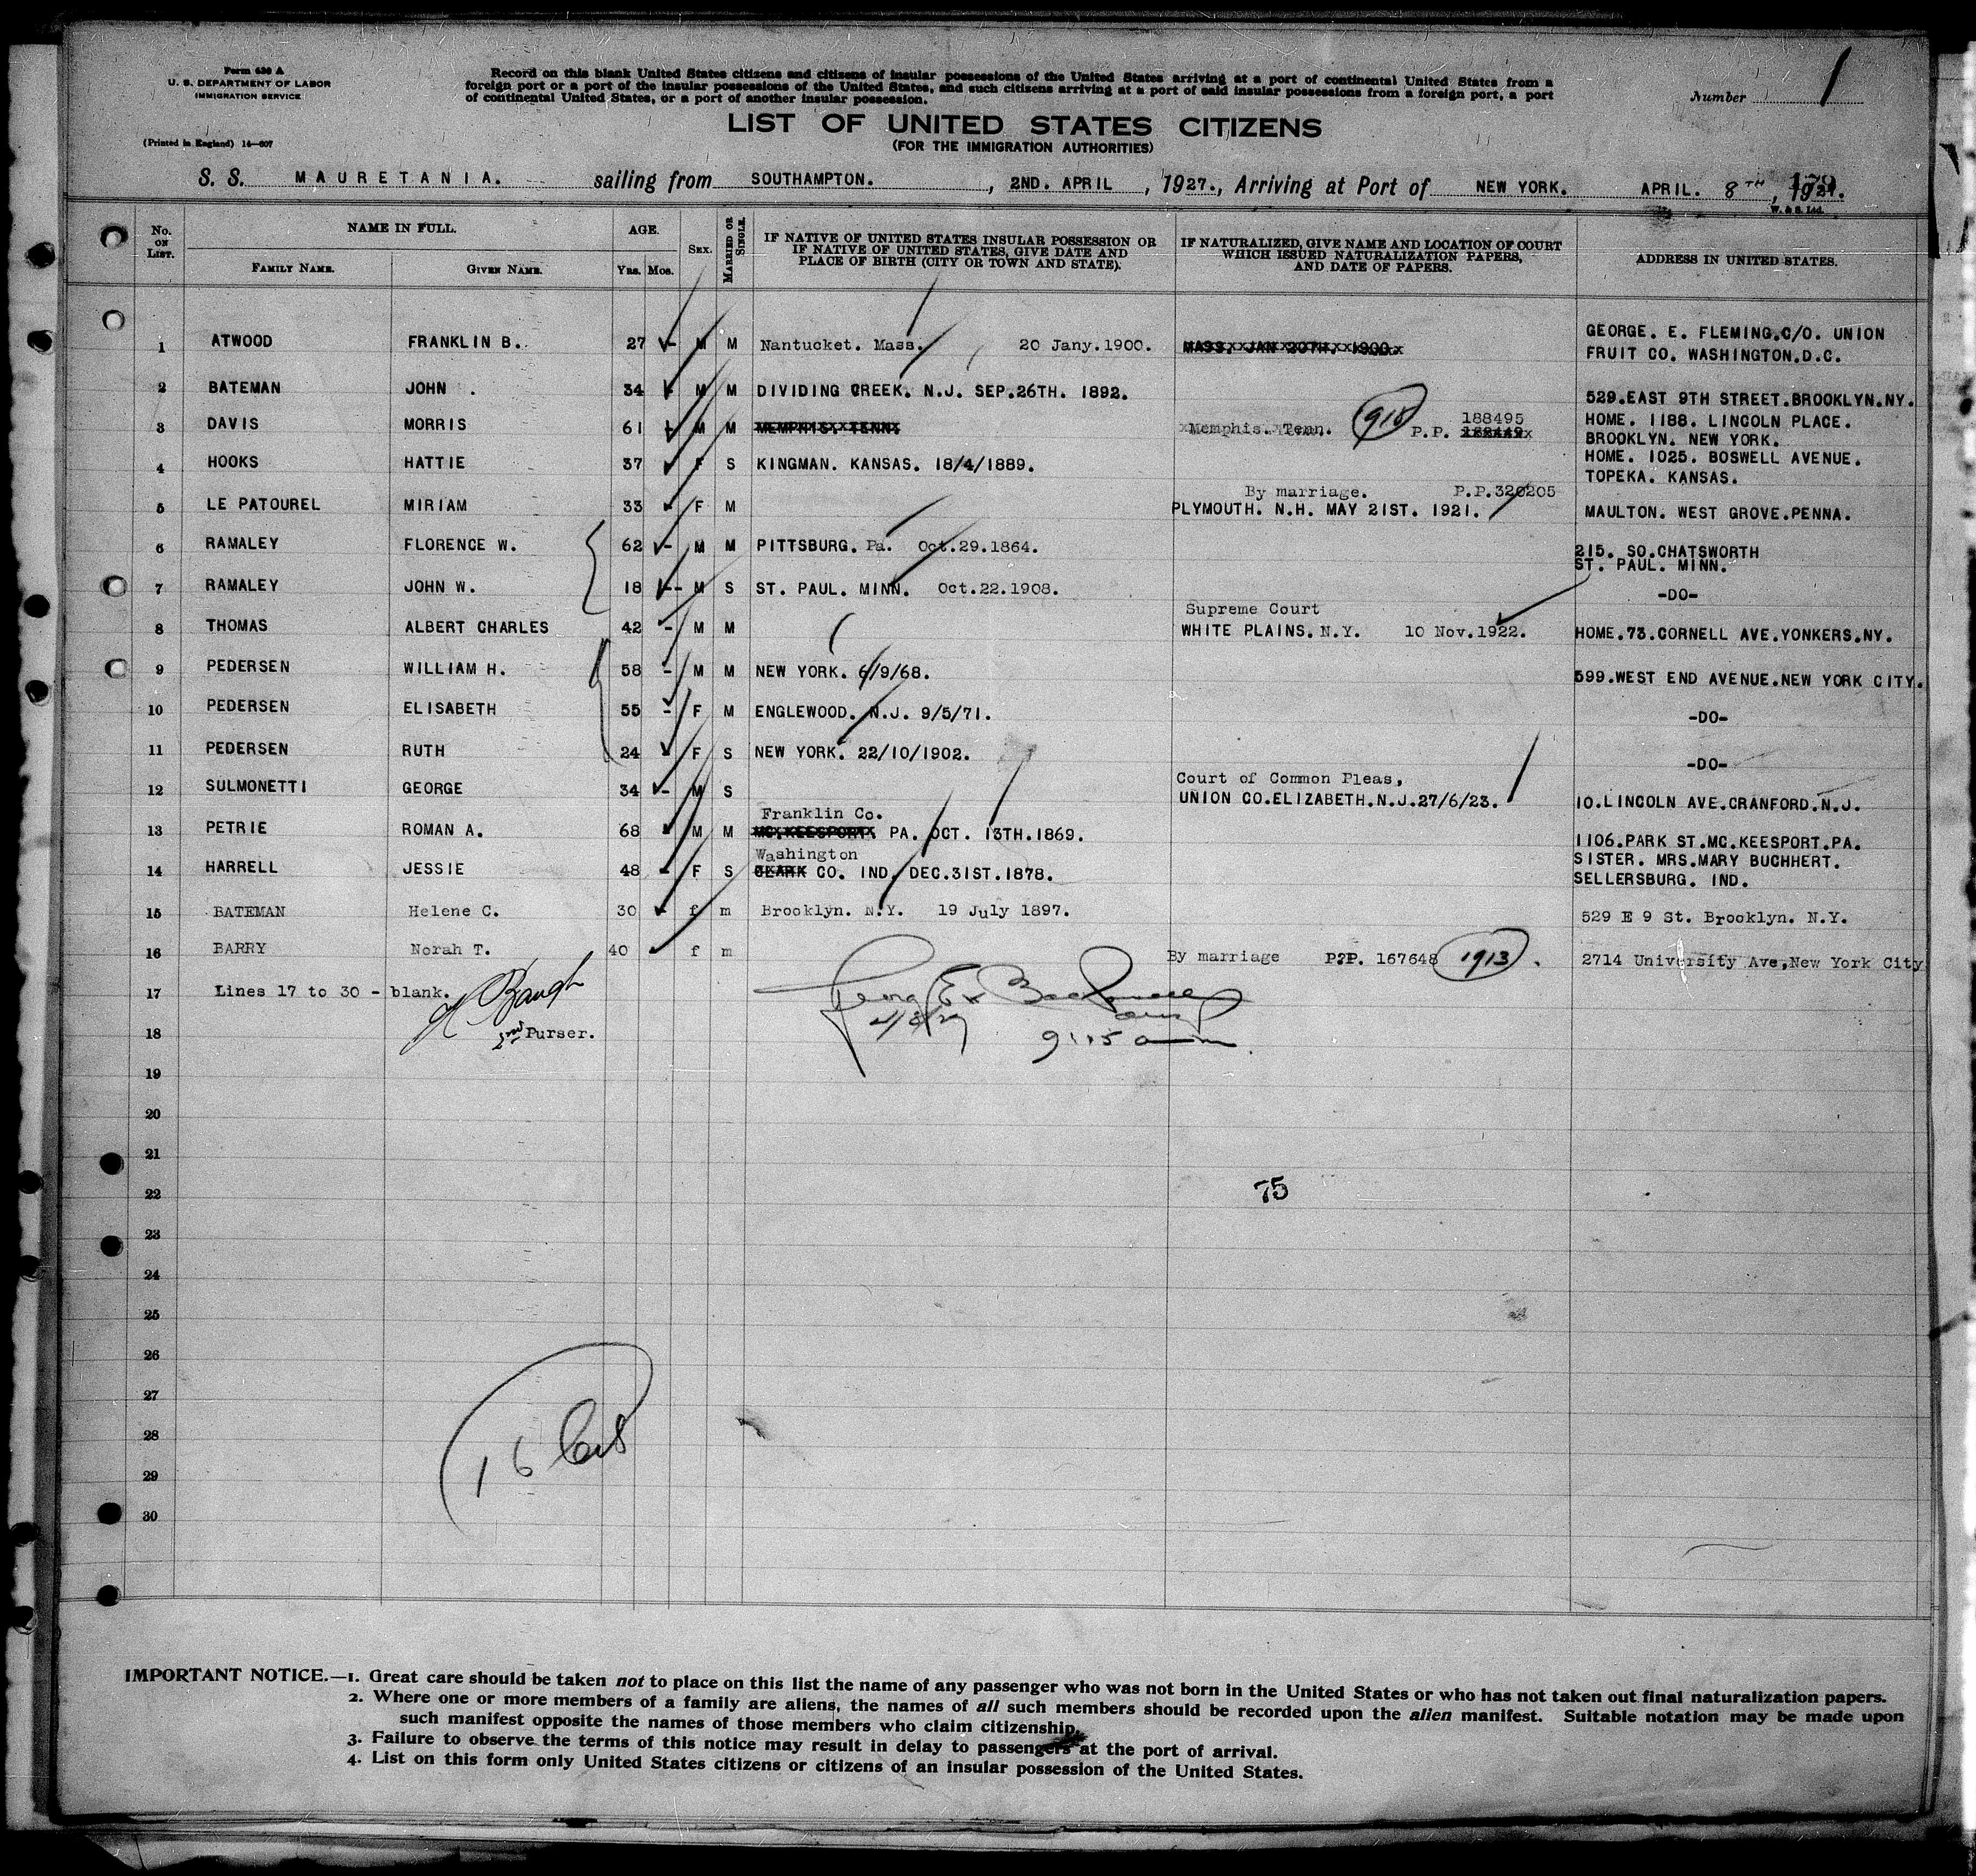 Form 630 A
U. S. DEPARTMENT OF LABOR
IMMIGRATION SERVICE
(Printed in England) 14—607
Record on this blank United States citizens and citizens of insular possessions of the United States arriving at a port of continental United States from a
foreign port or a port of the insular possessions of the United States, and such citizens arriving at a port of said insular possessions from a foreign port, a port
of continental United States, or a port of another insular possession.
Number 1
LIST OF UNITED STATES CITIZENS
(FOR THE IMMIGRATION AUTHORITIES)
S. S. MAURETANIA. sailing from SOUTHAMPTON. , 2ND. APRIL , 1927., Arriving at Port of NEW YORK. APRIL. 8TH , 1927.
W. & S. Ltd.
No. ON LIST.
NAME IN FULL.
FAMILY NAME.
GIVEN NAME.
AGE.
Yrs. Mos.
SEX.
MARRIED OR SINGLE.
IF NATIVE OF UNITED STATES INSULAR POSSESSION OR
IF NATIVE OF UNITED STATES, GIVE DATE AND
PLACE OF BIRTH (CITY OR TOWN AND STATE).
IF NATURALIZED, GIVE NAME AND LOCATION OF COURT
WHICH ISSUED NATURALIZATION PAPERS,
AND DATE OF PAPERS.
ADDRESS IN UNITED STATES.
1 ATWOOD FRANKLIN B. 27 - M M Nantucket. Mass. 20 Jany.1900. MASS. JAN 20TH. 1900. GEORGE. E. FLEMING.C/O. UNION
FRUIT CO. WASHINGTON.D.C.
2 BATEMAN JOHN . 34 - M M DIVIDING CREEK. N.J. SEP.26TH. 1892. 529.EAST 9TH STREET.BROOKLYN.NY.
3 DAVIS MORRIS 61 - M M MEMPHIS. TENN. Memphis. Tenn. 1918 P.P. 188495 HOME. 1188. LINCOLN PLACE.
BROOKLYN. NEW YORK.
4 HOOKS HATTIE 37 - F S KINGMAN. KANSAS. 18/4/1889. HOME. 1025. BOSWELL AVENUE.
TOPEKA. KANSAS.
5 LE PATOUREL MIRIAM 33 - F M By marriage. P.P.320205
PLYMOUTH. N.H. MAY 21ST. 1921. MAULTON. WEST GROVE.PENNA.
6 RAMALEY FLORENCE W. 62 - M M PITTSBURG. Pa. Oct.29.1864. 215. SO.CHATSWORTH
ST. PAUL. MINN.
7 RAMALEY JOHN W. 18 -- M S ST. PAUL. MINN. Oct.22.1908. -DO-
8 THOMAS ALBERT CHARLES 42 - M M Supreme Court
WHITE PLAINS. N.Y. 10 Nov.1922. HOME.73.CORNELL AVE.YONKERS.NY.
9 PEDERSEN WILLIAM H. 58 - M M NEW YORK. 6/9/68. 599.WEST END AVENUE.NEW YORK CITY.
10 PEDERSEN ELISABETH 55 - F M ENGLEWOOD. N.J. 9/5/71. -DO-
11 PEDERSEN RUTH 24 - F S NEW YORK. 22/10/1902. -DO-
12 SULMONETTI GEORGE 34 - M S Court of Common Pleas,
UNION CO.ELIZABETH.N.J.27/6/23. 10.LINCOLN AVE.CRANFORD.N.J.
Franklin Co.
13 PETRIE ROMAN A. 68 - M M MC.KEESPORT. PA. OCT. 13TH.1869. 1106.PARK ST.MC.KEESPORT.PA.
Washington
14 HARRELL JESSIE 48 - F S CLARK CO. IND. DEC.31ST.1878. SISTER. MRS.MARY BUCHHERT.
SELLERSBURG. IND.
15 BATEMAN Helene C. 30 - f m Brooklyn. N.Y. 19 July 1897. 529 E 9 St. Brooklyn. N.Y.
16 BARRY Norah T. 40 f m By marriage P?P. 167648 1913 . 2714 University Ave,New York City
17 Lines 17 to 30 - blank.
2nd Purser.
9:15 am
18
19
20
21
22
75
23
24
25
26
27
28
16
29
30
IMPORTANT NOTICE.—1. Great care should be taken not to place on this list the name of any passenger who was not born in the United States or who has not taken out final naturalization papers.
2. Where one or more members of a family are aliens, the names of all such members should be recorded upon the alien manifest. Suitable notation may be made upon
such manifest opposite the names of those members who claim citizenship.
3. Failure to observe the terms of this notice may result in delay to passengers at the port of arrival.
4. List on this form only United States citizens or citizens of an insular possession of the United States.